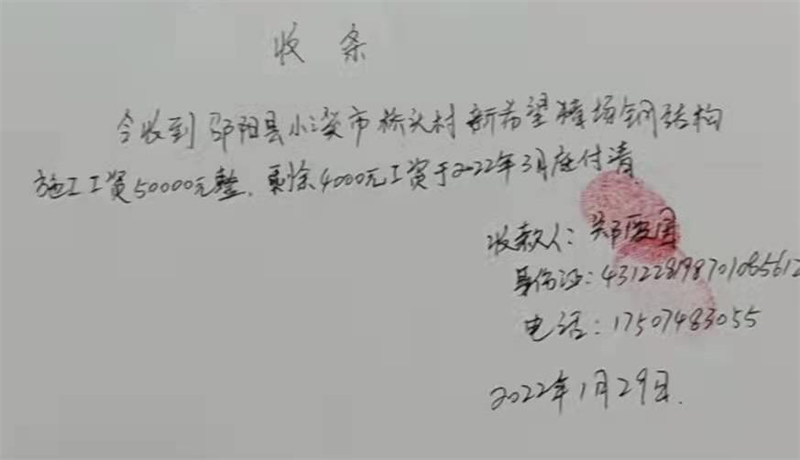 收条
今收到邵阳县小溪市桥头村新希望猪场钢结构
施工工资50000元整，剩余4000元工资于2022年3月底付清
收款人：郑
身份证：431228198701085612
电话：17507483055
2022年1月29日.